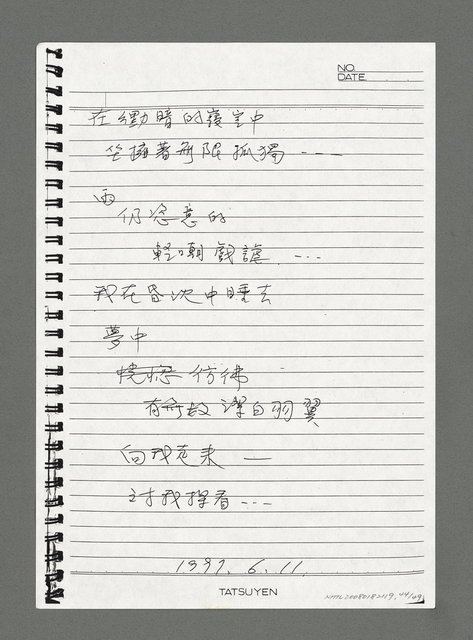 NO.
DATE
在黝暗的寢室中
坐擁著無限孤獨 ---
雨
仍恣意的
輕嘲戲謔 ---
我在昏沈中睡去
夢中
恍惚 彷彿
有無數潔白羽翼
向我走來 —
對我探看 ---
1997. 6. 11
TATSUYEN
NMTL20080182119, 44/49